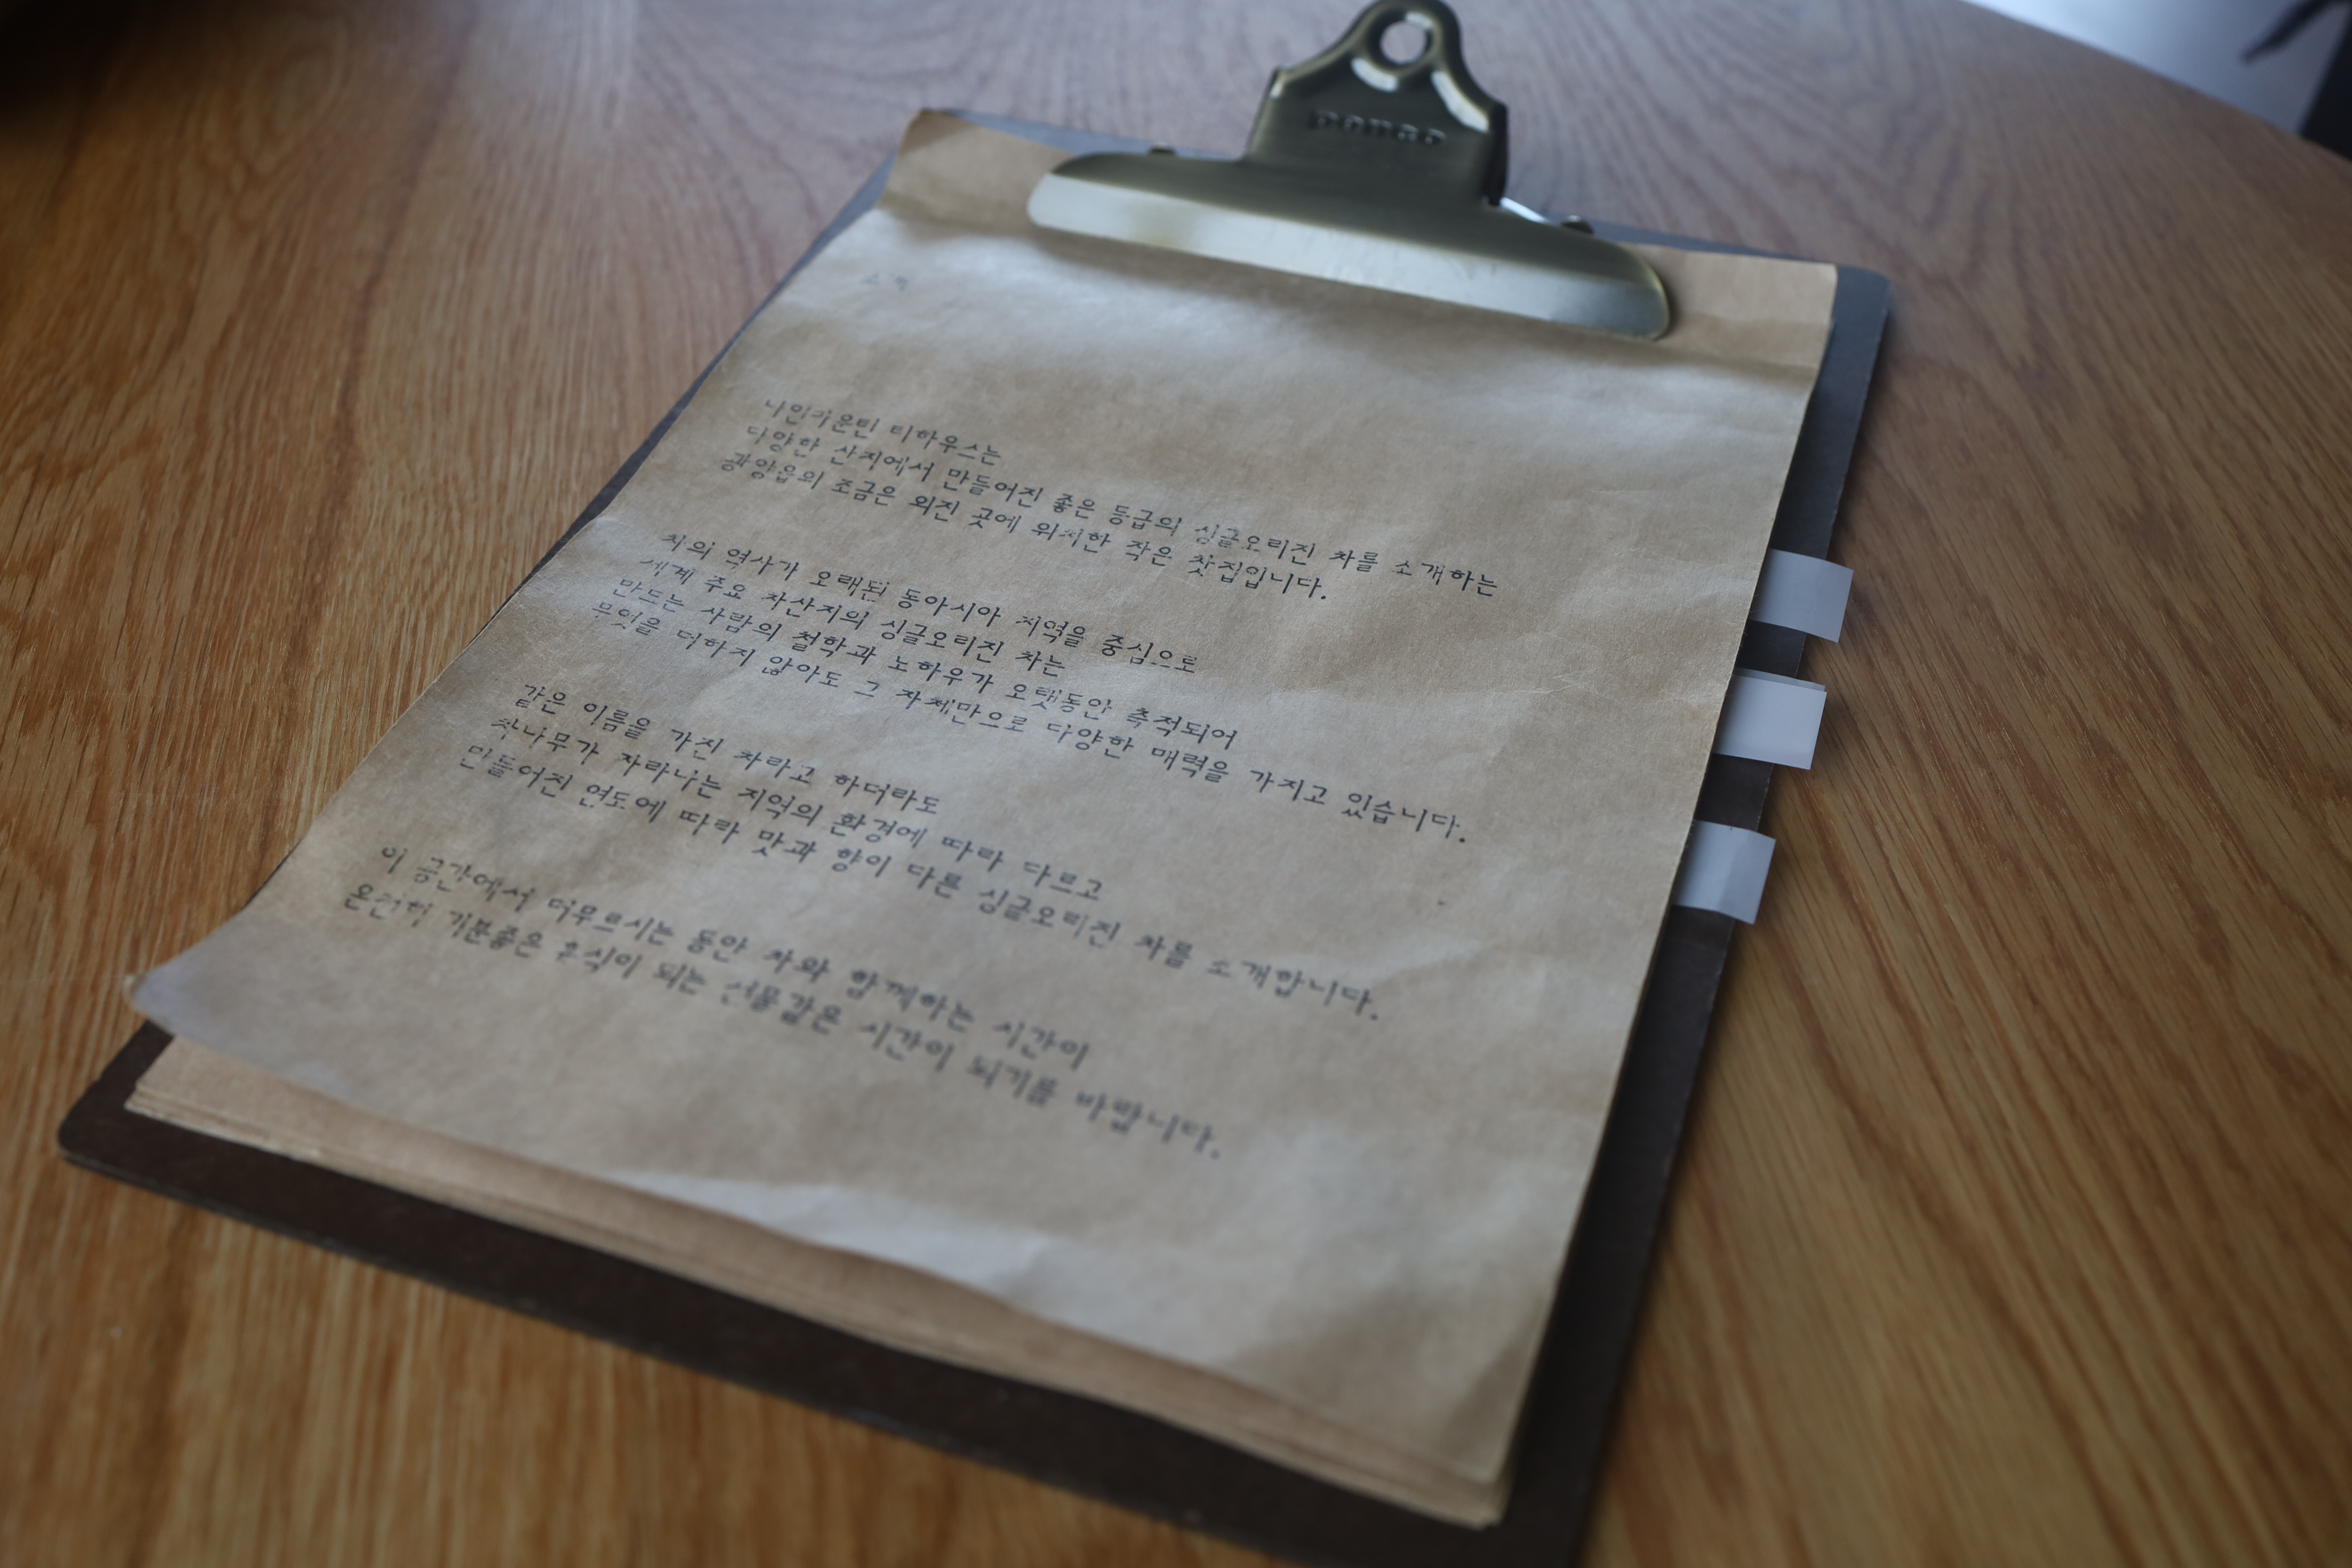 PENCO
소개
나인마운틴 티하우스는
다양한 산지에서 만들어진 좋은 등급의 싱글오리진 차를 소개하는
광양읍의 조금은 외진 곳에 위치한 작은 찻집입니다.
차의 역사가 오래된 동아시아 지역을 중심으로
세계 주요 차산지의 싱글오리진 차는
만드는 사람의 철학과 노하우가 오랫동안 축적되어
무엇을 더하지 않아도 그 자체만으로 다양한 매력을 가지고 있습니다.
같은 이름을 가진 차라고 하더라도
차나무가 자라나는 지역의 환경에 따라 다르고
만들어진 연도에 따라 맛과 향이 다른 싱글오리진 차를 소개합니다.
이 공간에서 머무르시는 동안 차와 함께하는 시간이
온전히 기분좋은 휴식이 되는 선물같은 시간이 되기를 바랍니다.